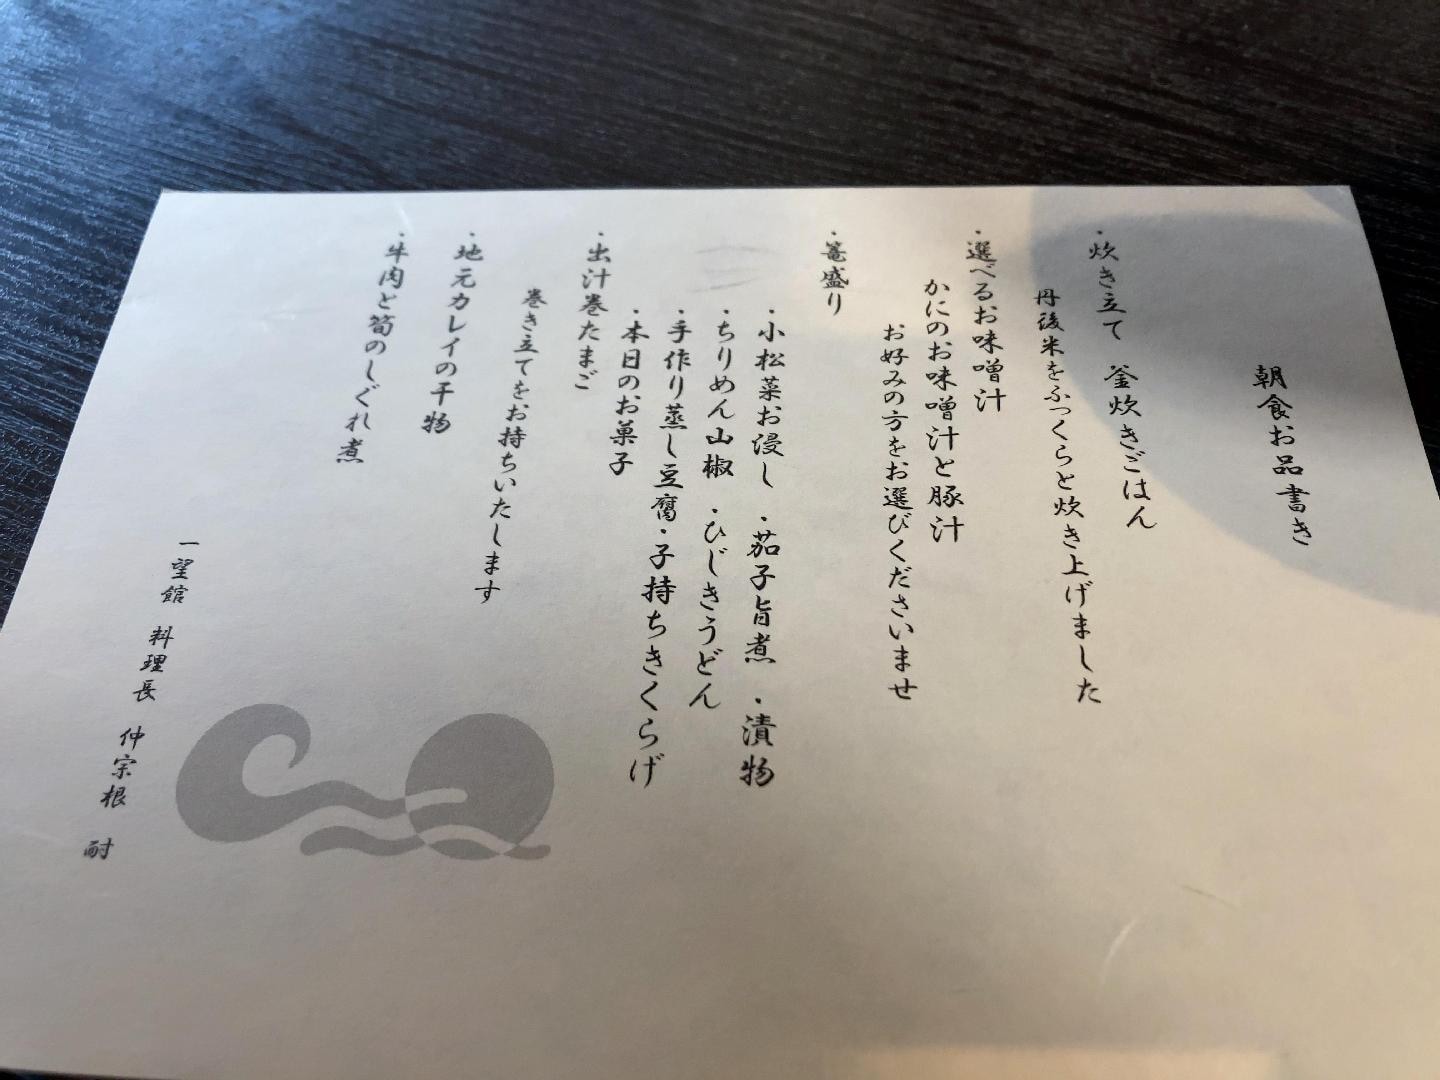 朝食お品書き
・炊き立て 釜炊きごはん
丹後米をふっくらと炊き上げました
・選べるお味噌汁
かにのお味噌汁と豚汁
お好みの方をお選びくださいませ
・篭盛り
・小松菜お浸し ・茄子旨煮 ・漬物
・ちりめん山椒 ・ひじきうどん
・手作り蒸し豆腐・子持ちきくらげ
・本日のお菓子
・出汁巻たまご
巻き立てをお持ちいたします
・地元カレイの干物
・牛肉と筍のしぐれ煮
一望館 料理長 仲宗根 耐